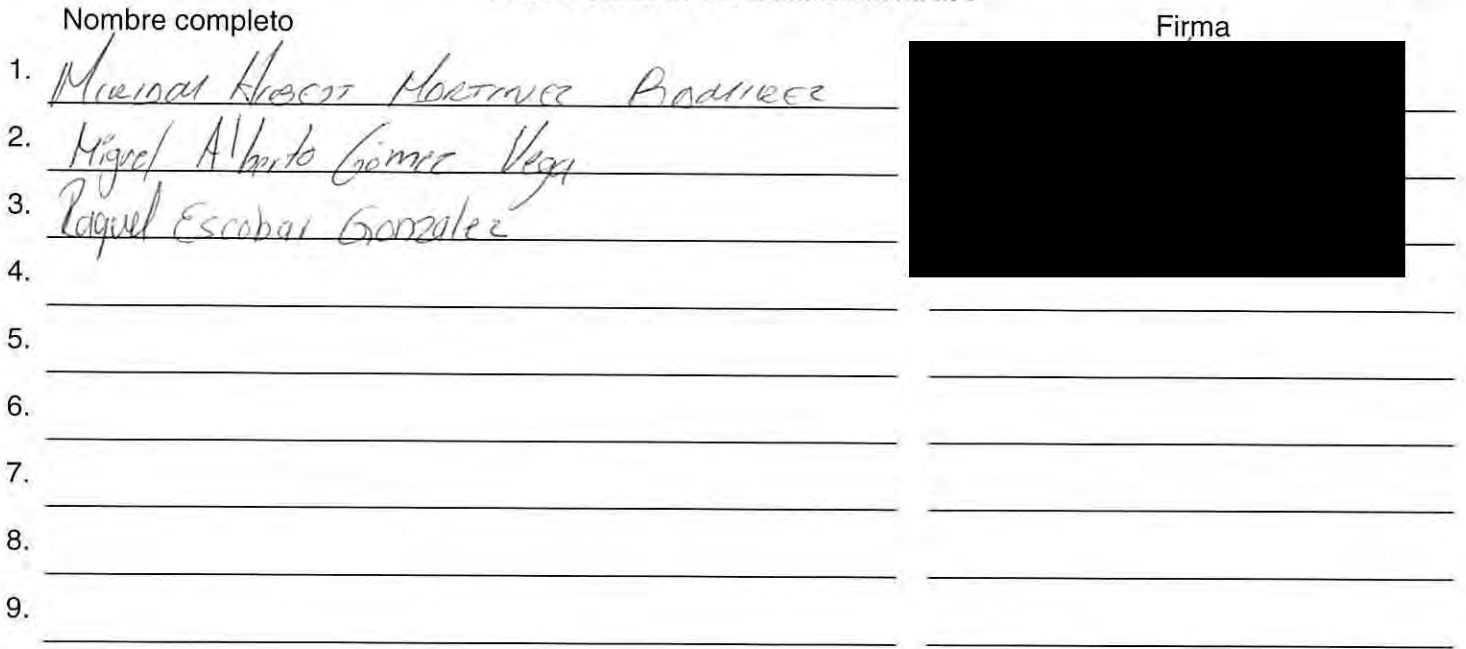 Nombre completo Firma
1. Martinez Ramirez
2. Miguel Alberto Gómez Vega
3. Raquel Escobar Gonzalez
4.
5.
6.
7.
8.
9.